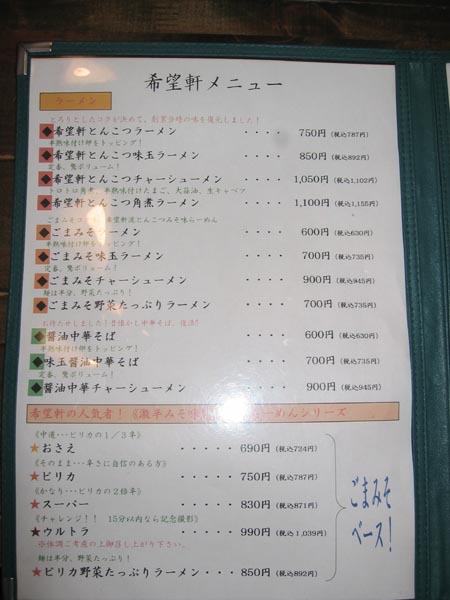 希望軒メニュー
ラーメン
とろりとしたコクが決めて、創業当時の味を復元しました！
◆希望軒とんこつラーメン ・・・・ 750円（税込787円）
半熟味付け卵をトッピング！
◆希望軒とんこつ味玉ラーメン ・・・・ 850円（税込892円）
定番、驚ボリューム！
◆希望軒とんこつチャーシューメン ・・・・ 1,050円（税込1,102円）
トロトロ角煮、半熟味付けたまご、大蒜油、生キャベツ
◆希望軒とんこつ角煮ラーメン ・・・・ 1,100円（税込1,155円）
ごまみそコク 希望軒流とんこつみそ味らーめん
◆ごまみそラーメン ・・・・ 600円（税込630円）
半熟味付け卵をトッピング！
◆ごまみそ味玉ラーメン ・・・・ 700円（税込735円）
定番、驚ボリューム！
◆ごまみそチャーシューメン ・・・・ 900円（税込945円）
麺は半分、野菜たっぷり！
◆ごまみそ野菜たっぷりラーメン ・・・・ 700円（税込735円）
お待たせしました！昔懐かし中華そば、復活！
◆醤油中華そば ・・・・ 600円（税込630円）
半熟味付け卵をトッピング！
◆味玉醤油中華そば ・・・・ 700円（税込735円）
定番、驚ボリューム！
◆醤油中華チャーシューメン ・・・・ 900円（税込945円）
希望軒の人気者！《激辛みそ味 らーめんシリーズ
《中道・・・ピリカの１／３辛》
★おさえ ・・・・・ 690円（税込724円）
《そのまま・・・辛さに自信のある方》
★ピリカ ・・・・・ 750円（税込787円）
《かなり・・・ピリカの２倍辛》
★スーパー ・・・・・ 830円（税込871円）
《チャレンジ！！ 15分以内なら記念撮影》
★ウルトラ ・・・・・ 990円（税込1,039円）
※体調ご考慮の上御召し上がり下さい。
麺は半分、野菜たっぷり！
★ピリカ野菜たっぷりラーメン ・・・ 850円（税込892円）
ごまみそ
ベース！